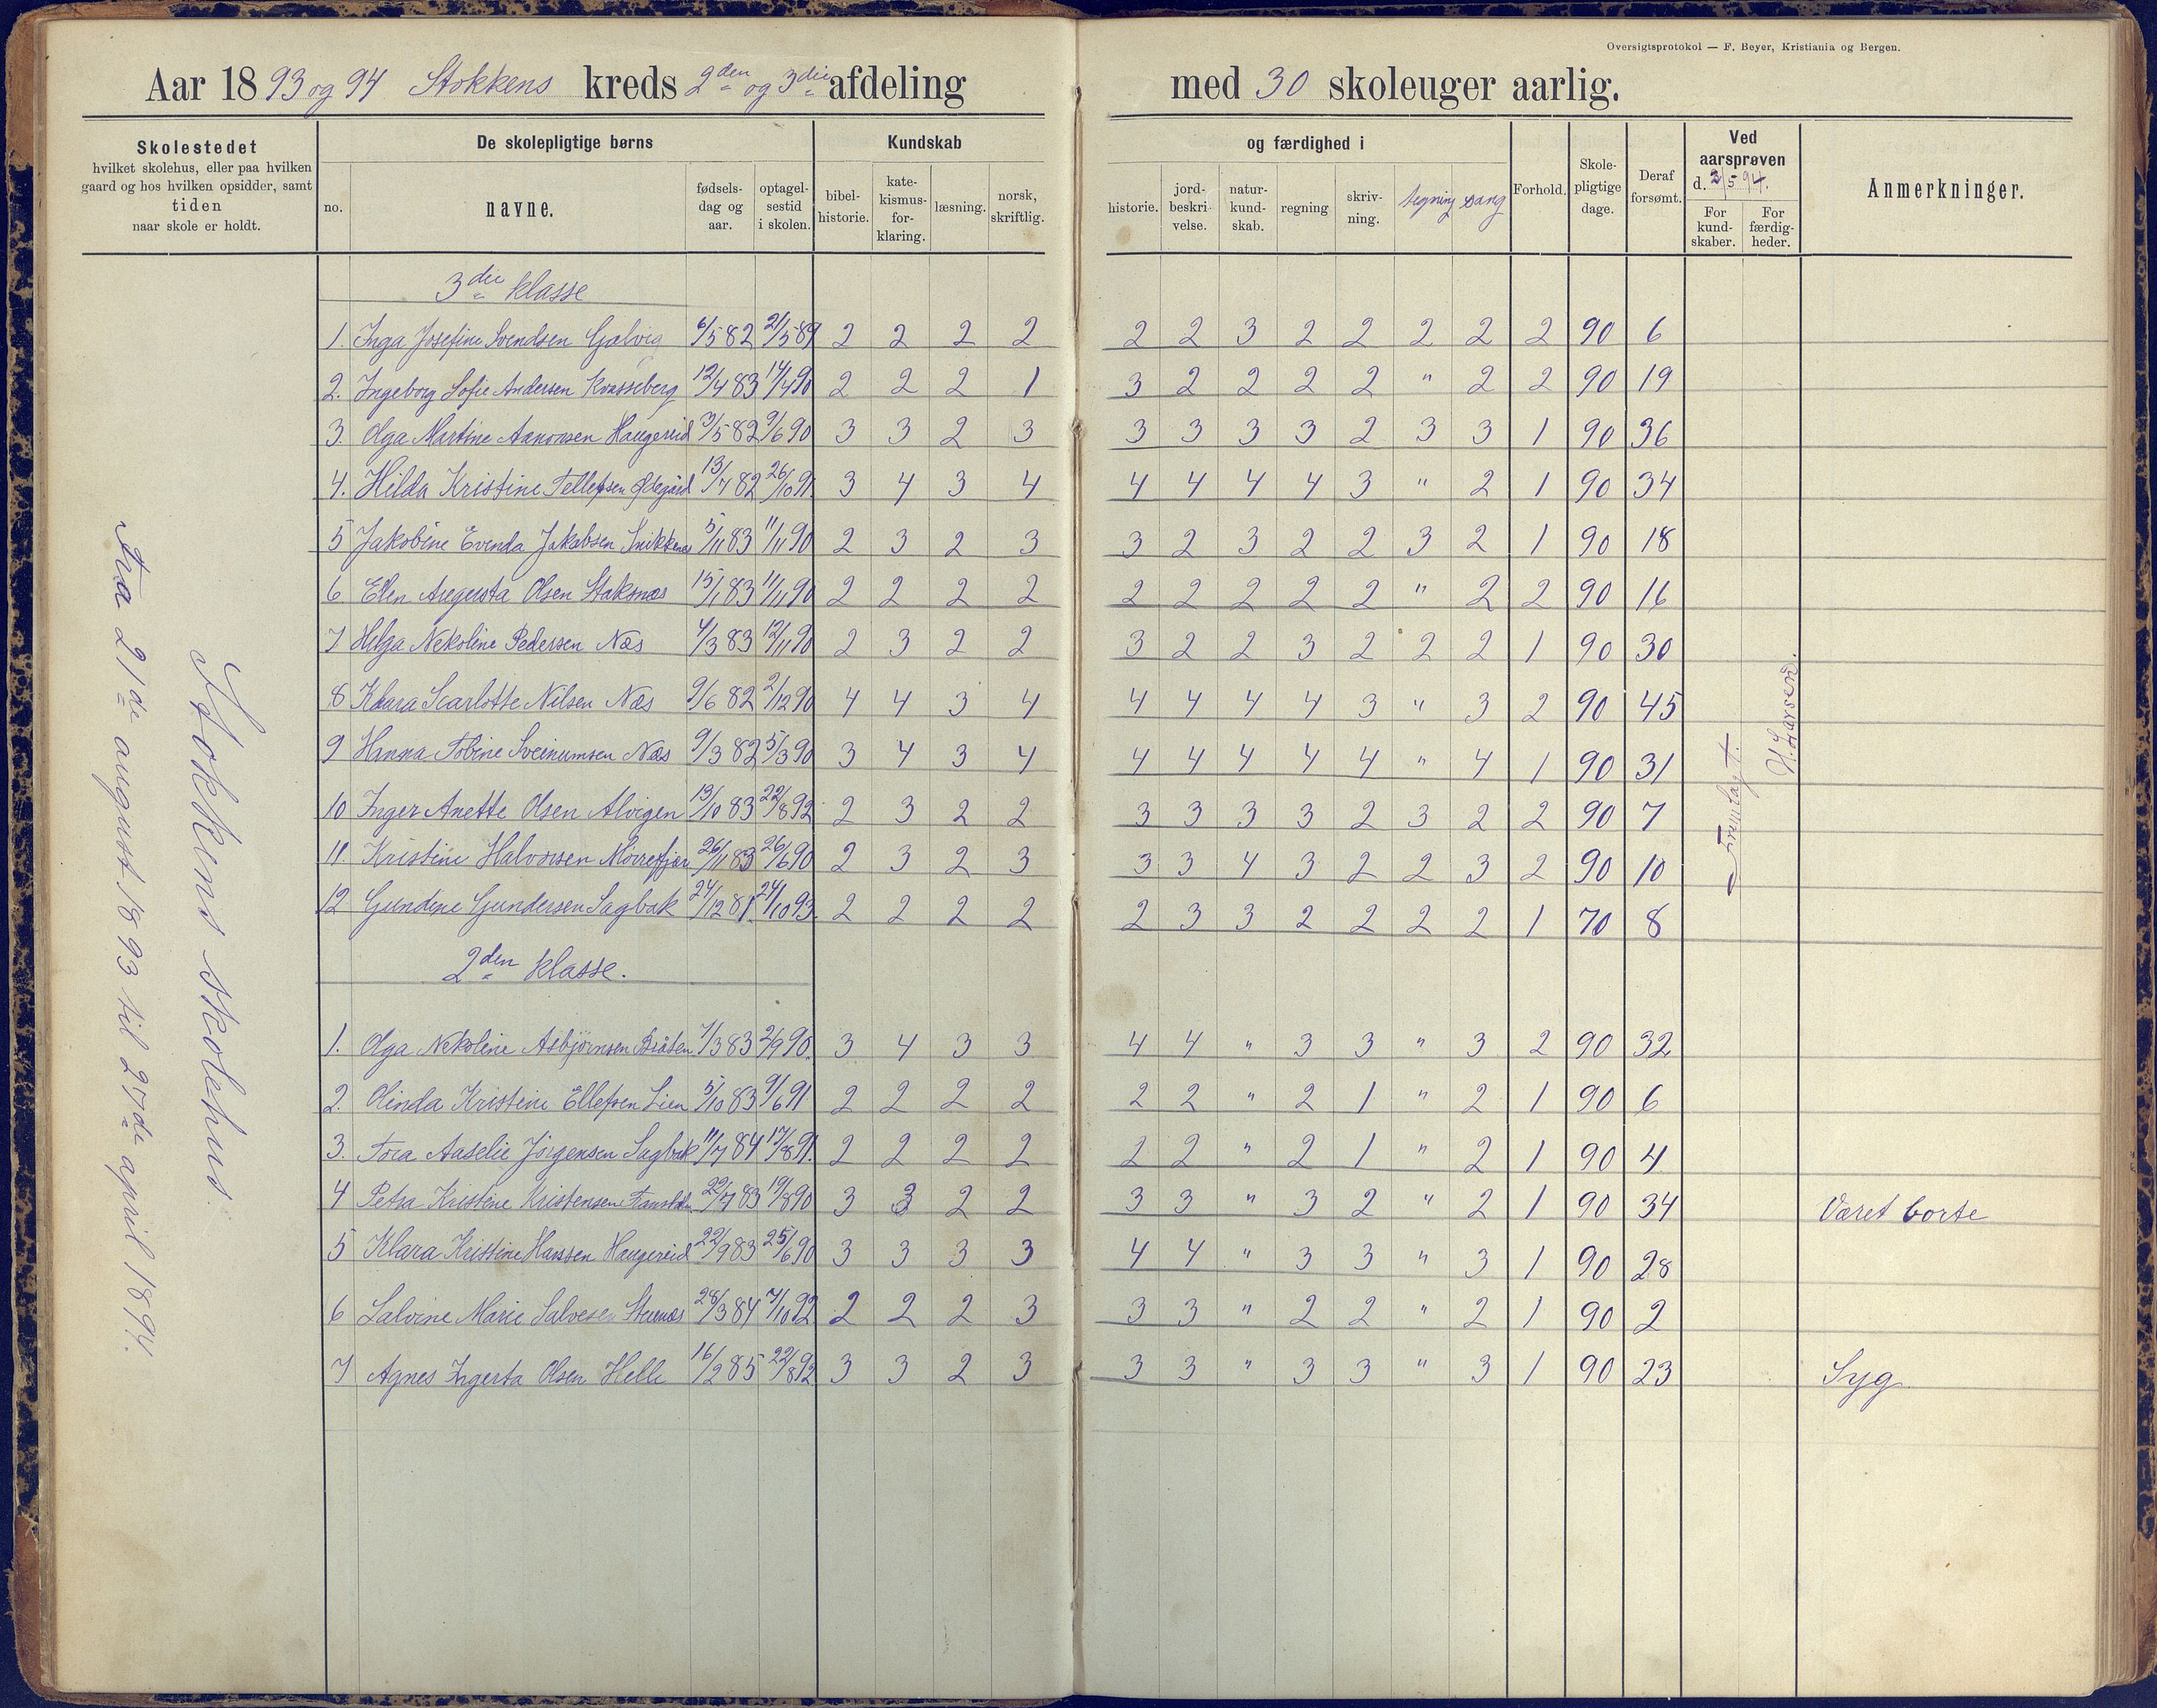 Oversigtsprotokol — F. Beyer, Kristiania og Bergen.
Aar 1893 og 94 Stokkens kreds 2den og 3die afdeling med 30 skoleuger aarlig.
Skolestedet
hvilket skolehus, eller paa hvilken
gaard og hos hvilken opsidder, samt
tiden
naar skole er holdt.
De skolepligtige børns
no.
navne.
fødsels-
dag og
aar.
optagel-
sestid
i skolen.
Kundskab
bibel-
historie.
kate-
kismus-
for-
klaring.
læsning.
norsk,
skriftlig.
og færdighed i
historie.
jord-
beskri-
velse.
natur-
kund-
skab.
regning
skriv-
ning.
tegning
sang
Forhold.
Skole-
pligtige
dage.
Deraf
forsømt.
Ved
aarsprøven
d. 2/5 94.
For
kund-
skaber.
For
færdig-
heder.
Anmerkninger.
Fra 21de august 1893 til 27de april 1894.
Stokkens skolehus.
3die klasse
1. Inga Josefine Svendsen Gjelvig 6/5 82 21/5 89 2 2 2 2 2 2 3 2 2 2 2 2 90 6
2. Ingeborg Sofie Andersen Kvasseberg 12/4 83 14/4 90 2 2 2 1 3 2 2 2 2 " 2 2 90 19
3. Olga Martine Aanonsen Haugereid 3/5 82 9/6 90 3 3 2 3 3 3 3 3 2 3 3 1 90 36
4. Hilda Kristine Tellefsen Ødegård 13/7 82 26/10 91 3 4 3 4 4 4 4 4 3 " 2 1 90 34
5 Jakobine Evenda Jakobsen Snikkenes 5/11 83 11/11 90 2 3 2 3 3 2 3 2 2 3 2 1 90 18
6 Ellen Augusta Olsen Staksnæs 15/1 83 11/11 90 2 2 2 2 2 2 2 2 2 " 2 2 90 16
7 Helga Nekoline Pedersen Næs 4/3 83 12/11 90 2 3 2 2 3 2 2 3 2 2 2 1 90 30
8 Klara Scarlotte Nilsen Næs 9/6 82 2/12 90 4 4 3 4 4 4 4 4 3 " 3 2 90 45
9 Hanna Tobine Sveinumsen Næs 9/3 82 5/3 90 3 4 3 4 4 4 4 4 4 " 4 1 90 31
10 Inger Anette Olsen Alvigen 13/10 83 22/8 92 2 3 2 2 3 3 3 3 2 3 2 2 90 7
11. Kristine Halvorsen Mörrefjær 26/11 83 26/6 90 2 3 2 3 3 3 4 3 2 2 3 2 90 10
12 Gundine Gundersen Sagbak 24/12 81. 24/10 93. 2 2 2 2 2 3 3 2 2 2 2 1 70 8
Fremlagt.
H. Larsen.
2den klasse.
1. Olga Nekoline Asbjörnsen Bråten 7/3 83 2/9 90. 3 4 3 3 4 4 " 3 3 " 3 2 90 32
2. Olinda Kristine Ellefsen Lien 5/10 83 9/6 91 2 2 2 2 2 2 " 2 1 " 2 1 90 6
3. Tora Aaselie Jörgensen Sagbak 11/7 84 17/8 91. 2 2 2 2 2 2 " 2 1 " 2 1 90 4
4 Petra Kristine Kristensen 29/7 83 19/8 90 3 3 2 2 3 3 " 3 2 " 2 1 90 34 Været borte
5 Klara Kristine Hanssen Haugereid 22/9 83 25/6 90 3 3 3 3 4 4 " 3 3 " 3 1 90 28
6 Salvine Marie Salvesen 28/3 84 7/10 92 2 2 2 3 3 3 " 2 2 " 2 1 90 2
7 Agnes Ingerta Olsen Helle 16/2 85 22/8 92 3 3 2 3 3 3 " 3 3 " 3 1 90 23 Syg